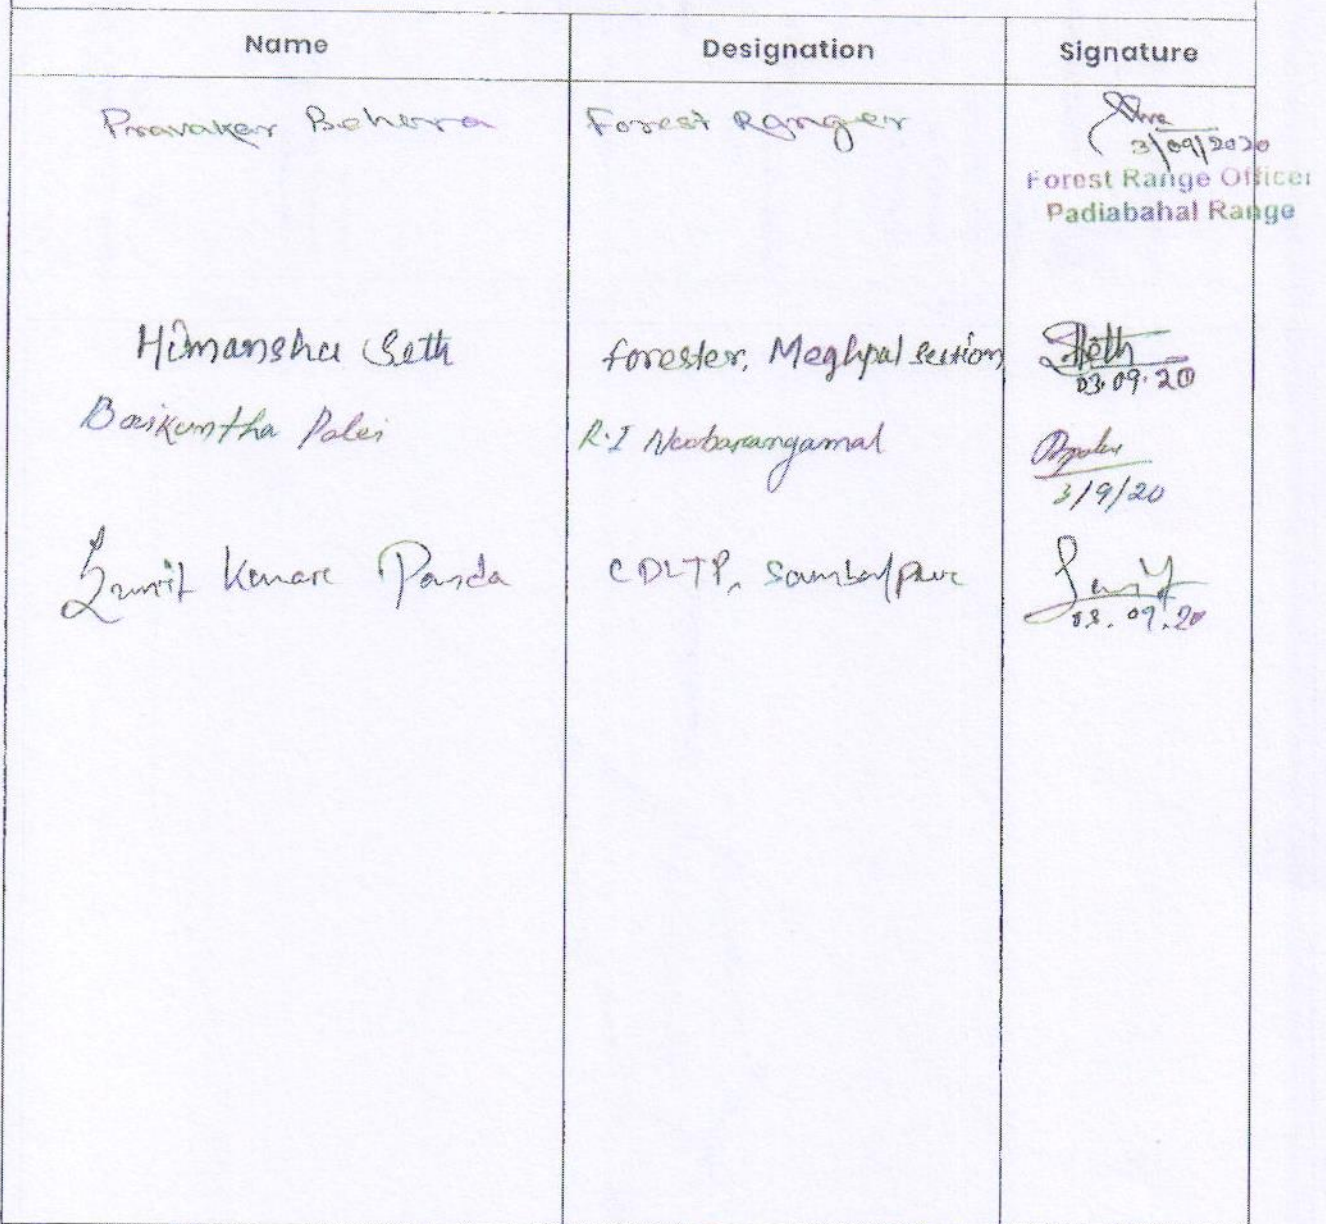 Name Designation Signature
Pravakar Behera Forest Ranger
3/09/2020
Forest Range Officer
Padiabahal Range
Himanshu Seth forester, Meghpal section Sheth
03.09.20
Baikuntha Palei R.I
3/9/20
Sumit Kumar Panda CDLTP, Sambalpur
03.09.20